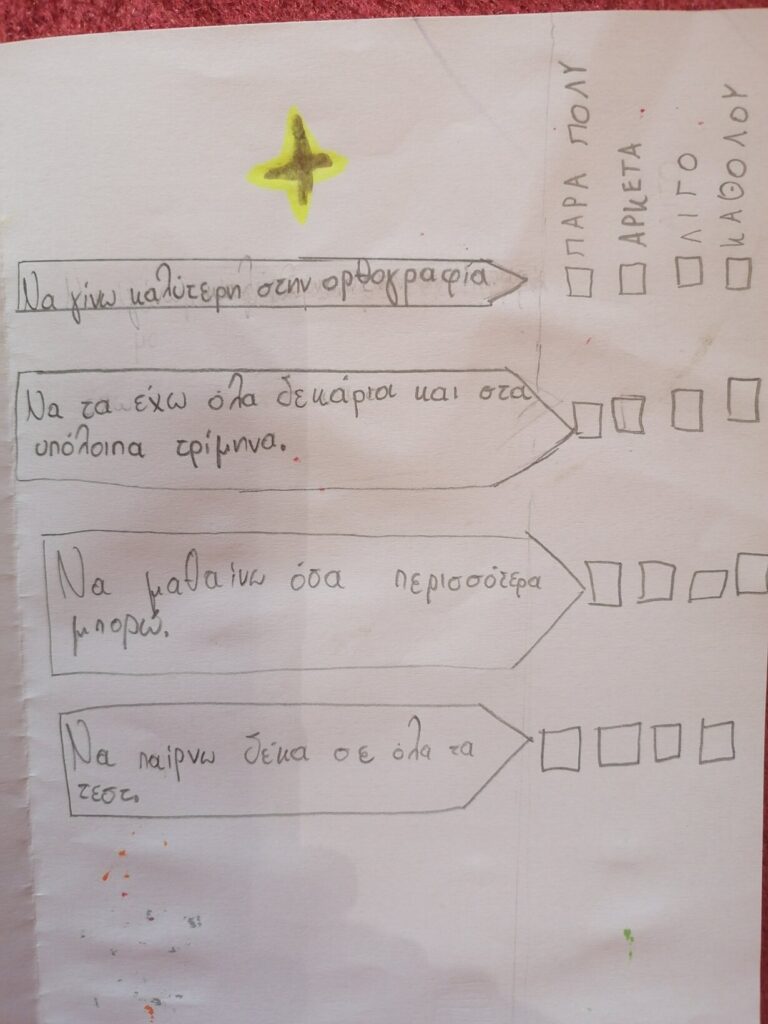 ΠΑΡΑ ΠΟΛΥ
ΑΡΚΕΤΑ
ΛΙΓΟ
ΚΑΘΟΛΟΥ
Να γίνω καλύτερη στην ορθογραφία
Να τα έχω όλα δεκάρια και στα
υπόλοιπα τρίμηνα.
Να μαθαίνω όσα περισσότερα
μπορώ.
Να παίρνω δέκα σε όλα τα
τεστ.